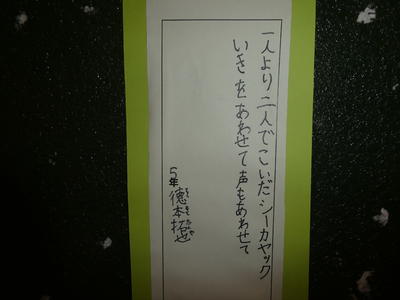 一人より二人でこいだシーカヤック
いきをあわせて声もあわせて
5年 徳本拓也